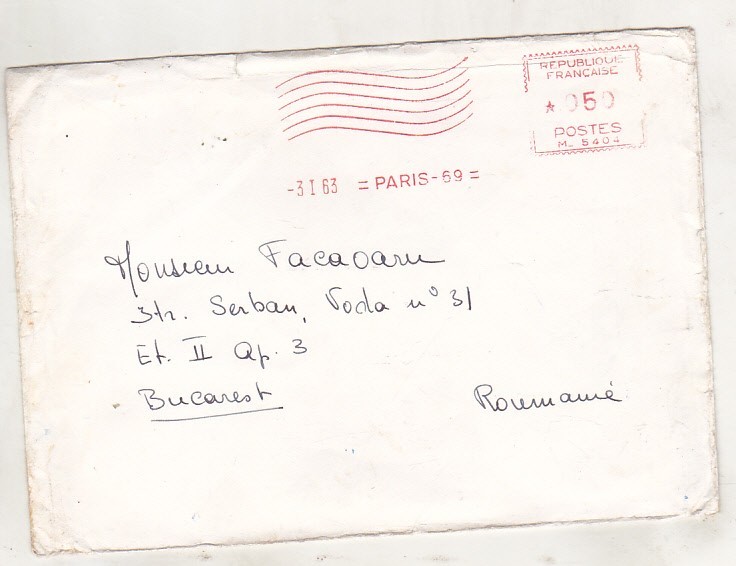 REPUBLIQUE
FRANCAISE
* 050
POSTES
M_ 5404
-3 I 63 = PARIS-69 =
Monsieur Facaoaru
Str. Serban, Voda n° 31
Et. II Ap. 3
Bucarest
Roumanie